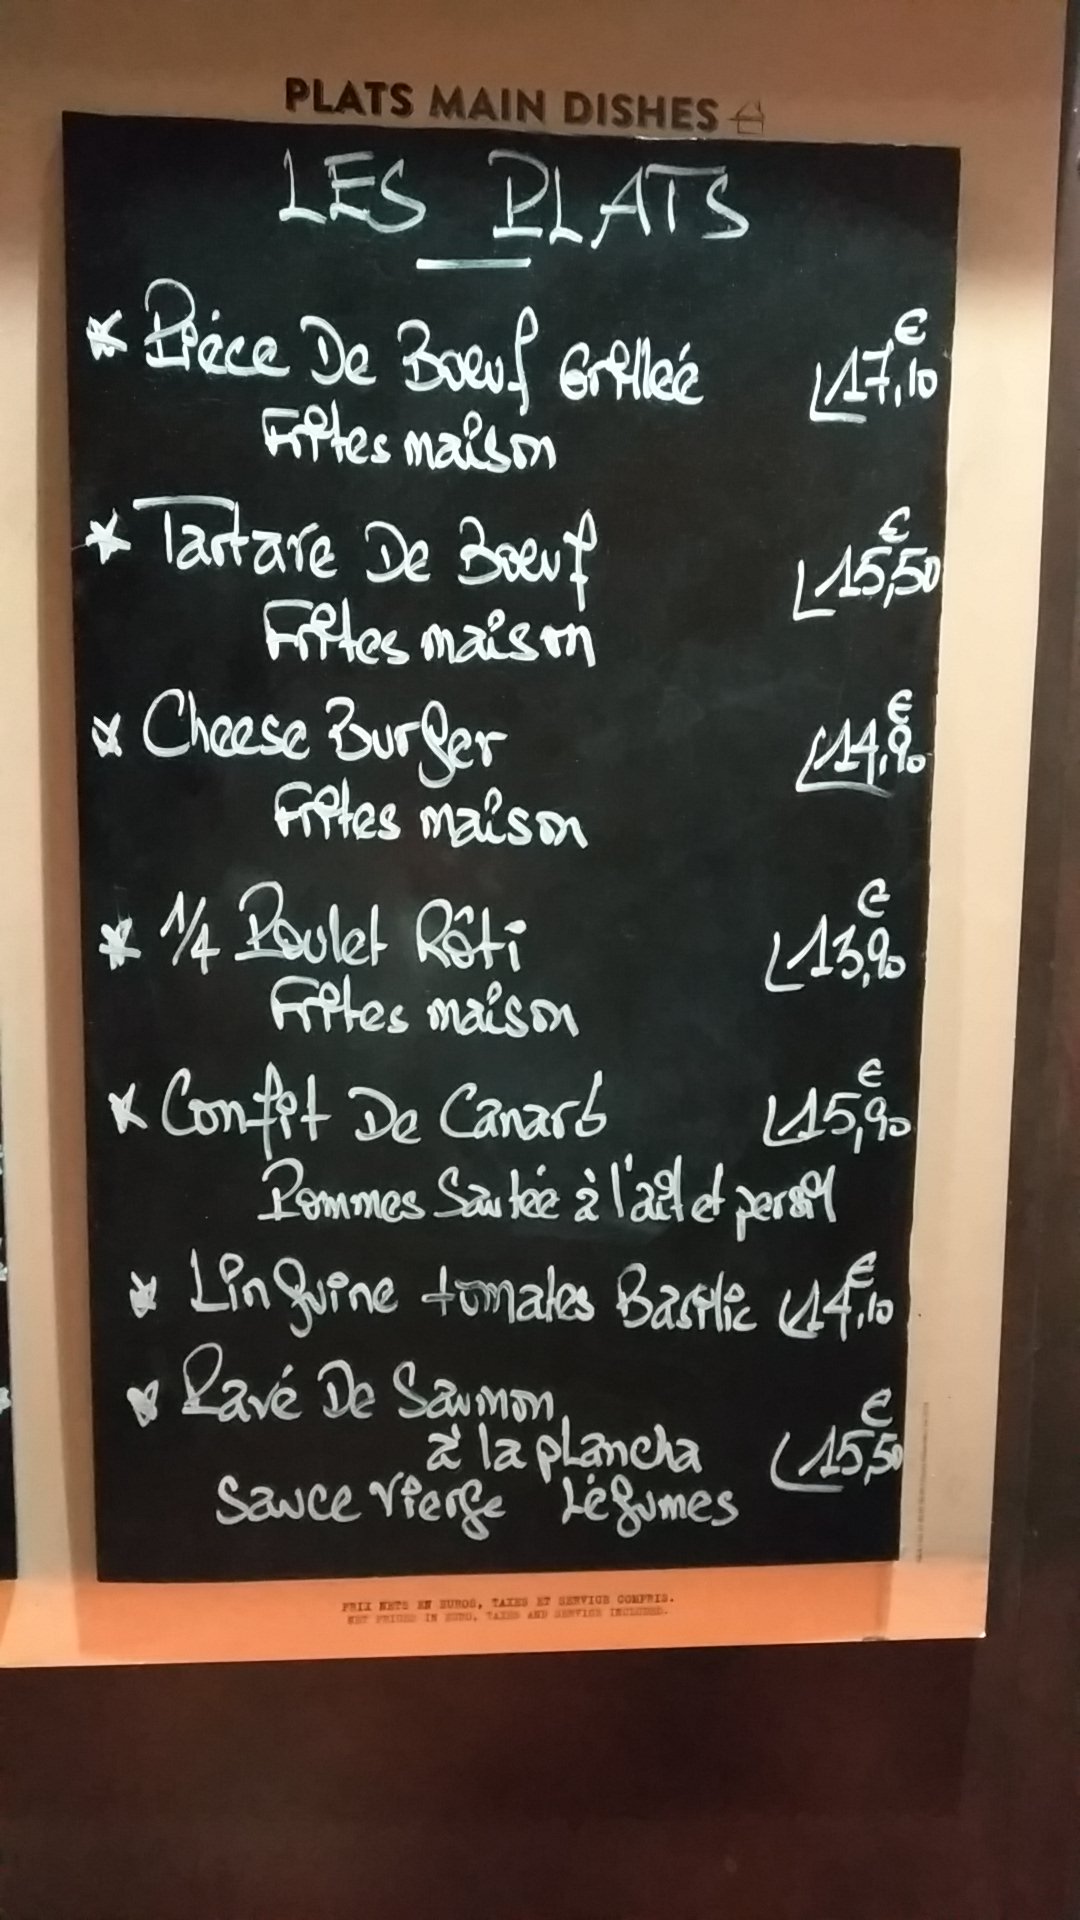 PLATS MAIN DISHES
LES PLATS
* Pièce De Boeuf Grillée 17,10 €
Frites maison
* Tartare De Boeuf 15,50 €
Frites maison
* Cheese Burger 14,90 €
Frites maison
* 1/4 Poulet Rôti 13,90 €
Frites maison
* Confit De Canard 15,90 €
Pommes Sautée à l'ail et persil
* Linguine tomates Basilic 14,10 €
* Pavé De Saumon
à la plancha 15,50 €
Sauce Vierge Légumes
PRIX NETS EN EUROS, TAXES ET SERVICE COMPRIS.
NET PRICES IN EURO, TAXES AND SERVICE INCLUDED.